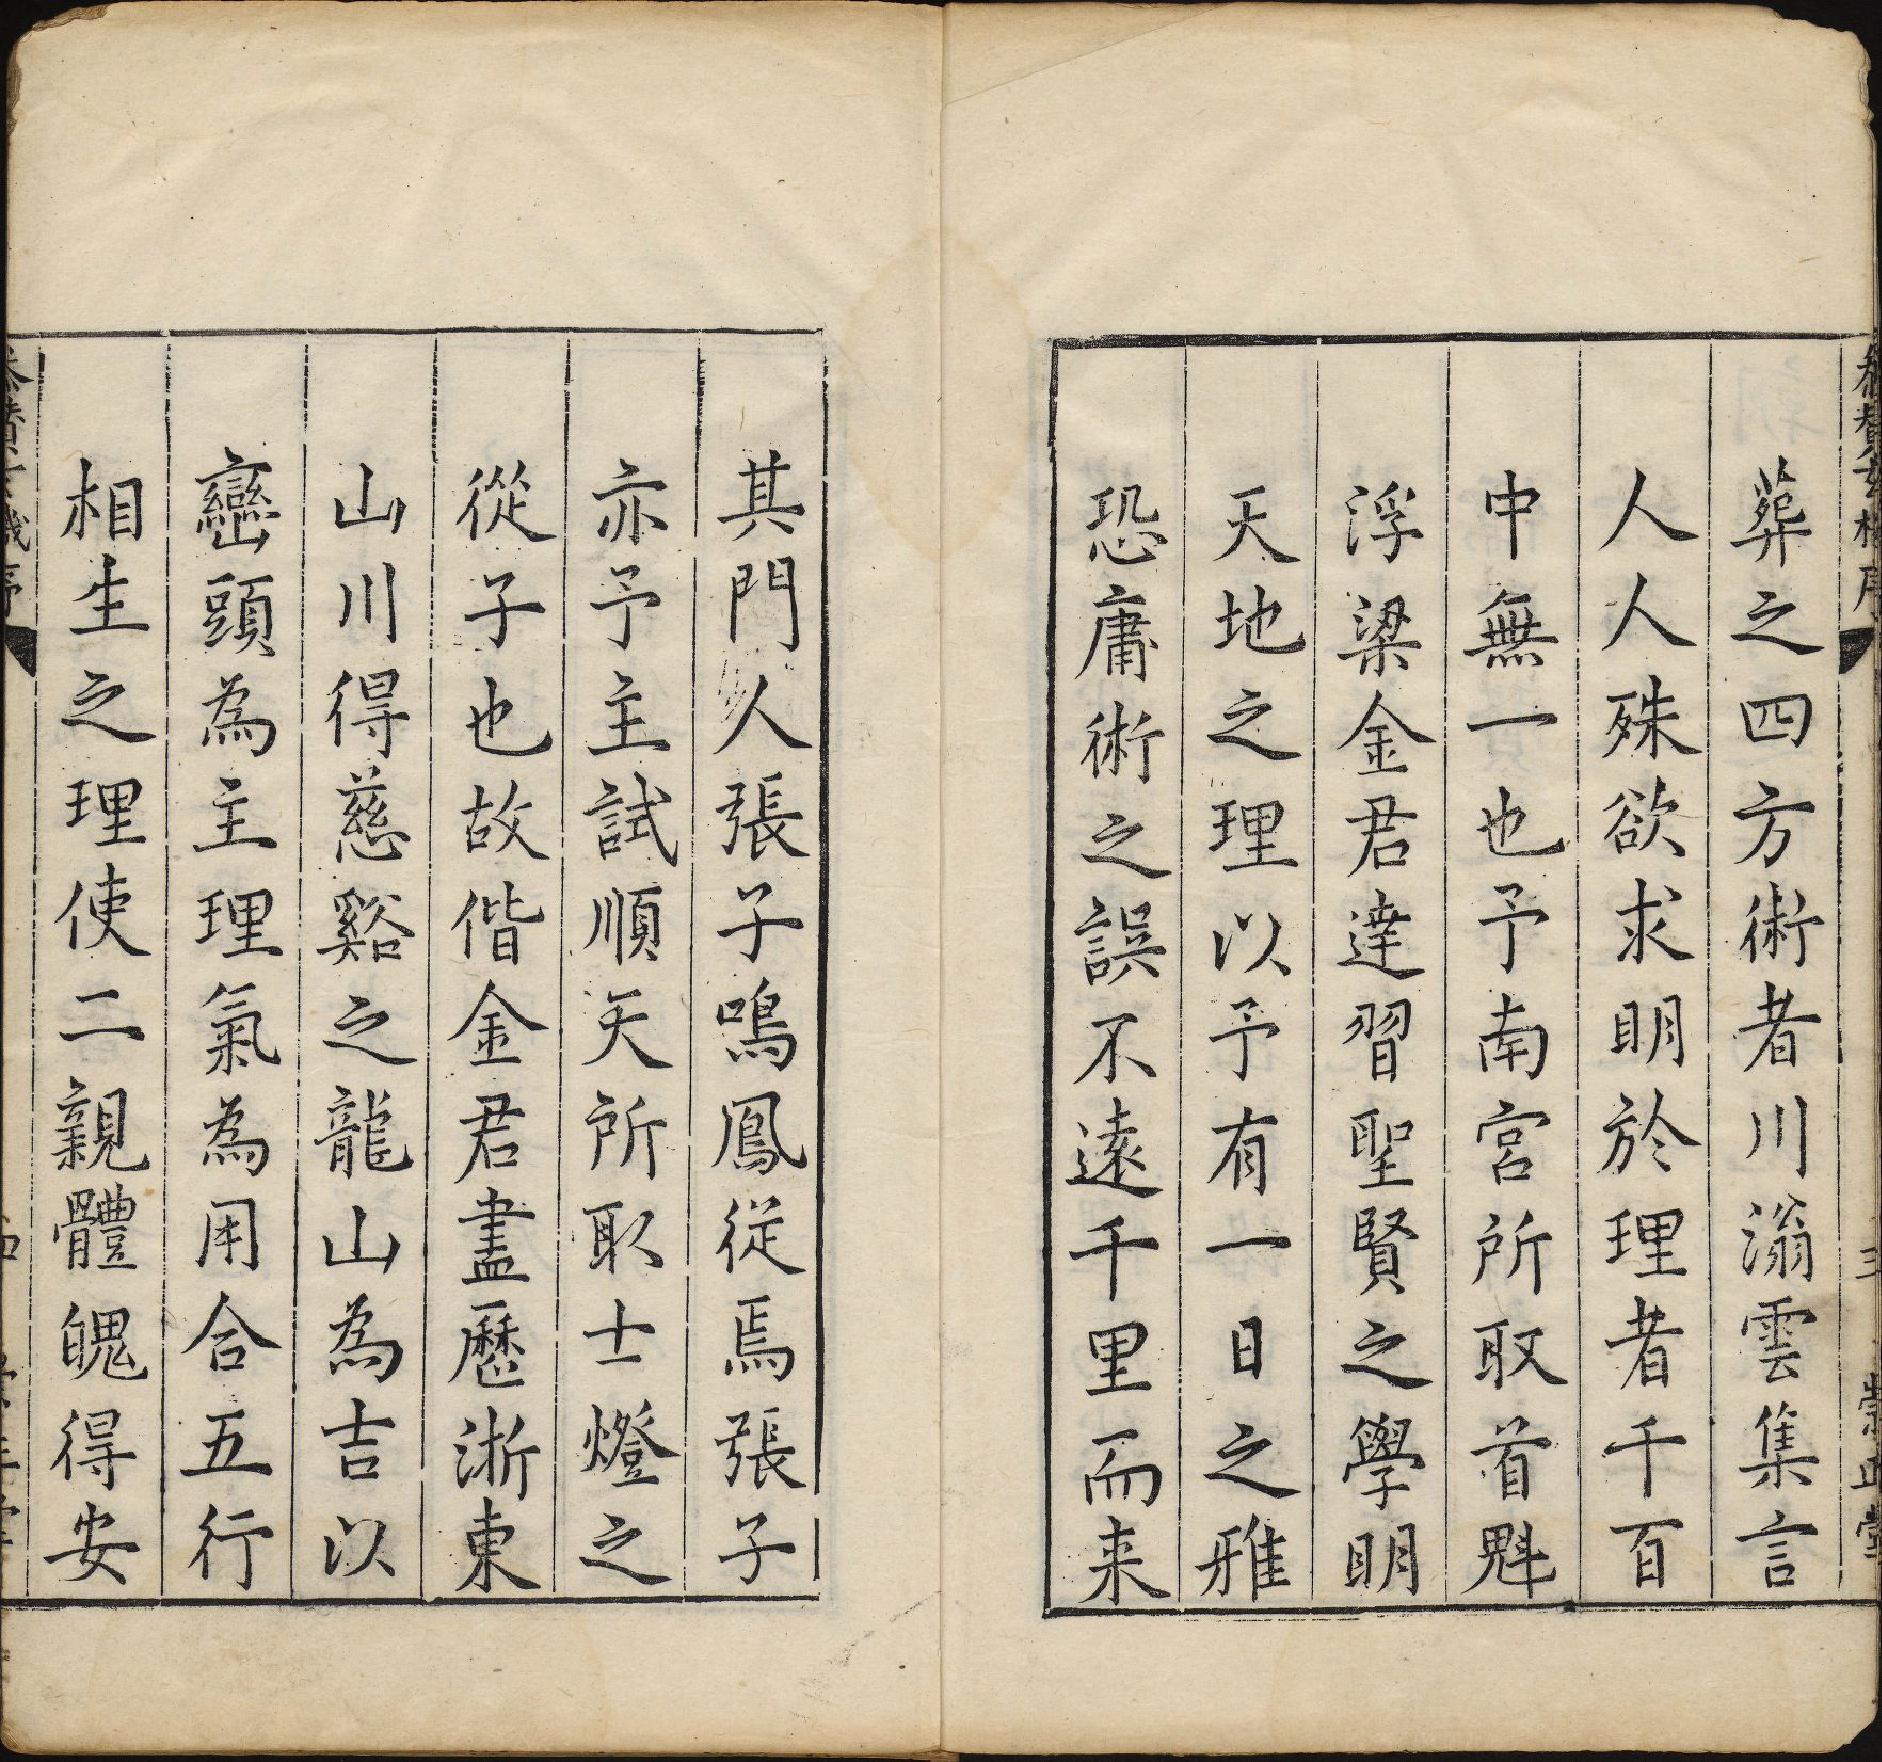 參贊玄機序
三
崇正堂
葬之四方術者川滃雲集言
人人殊欲求明於理者千百
中無一也予南宮所取首魁
浮梁金君達習聖賢之學明
天地之理以予有一日之雅
恐庸術之誤不遠千里而来
其門人張子鳴鳳從焉張子
亦予主試順天所取士燈之
從子也故偕金君盡歷浙東
山川得慈谿之龍山為吉以
巒頭為主理氣為用合五行
相生之理使二親體魄得安